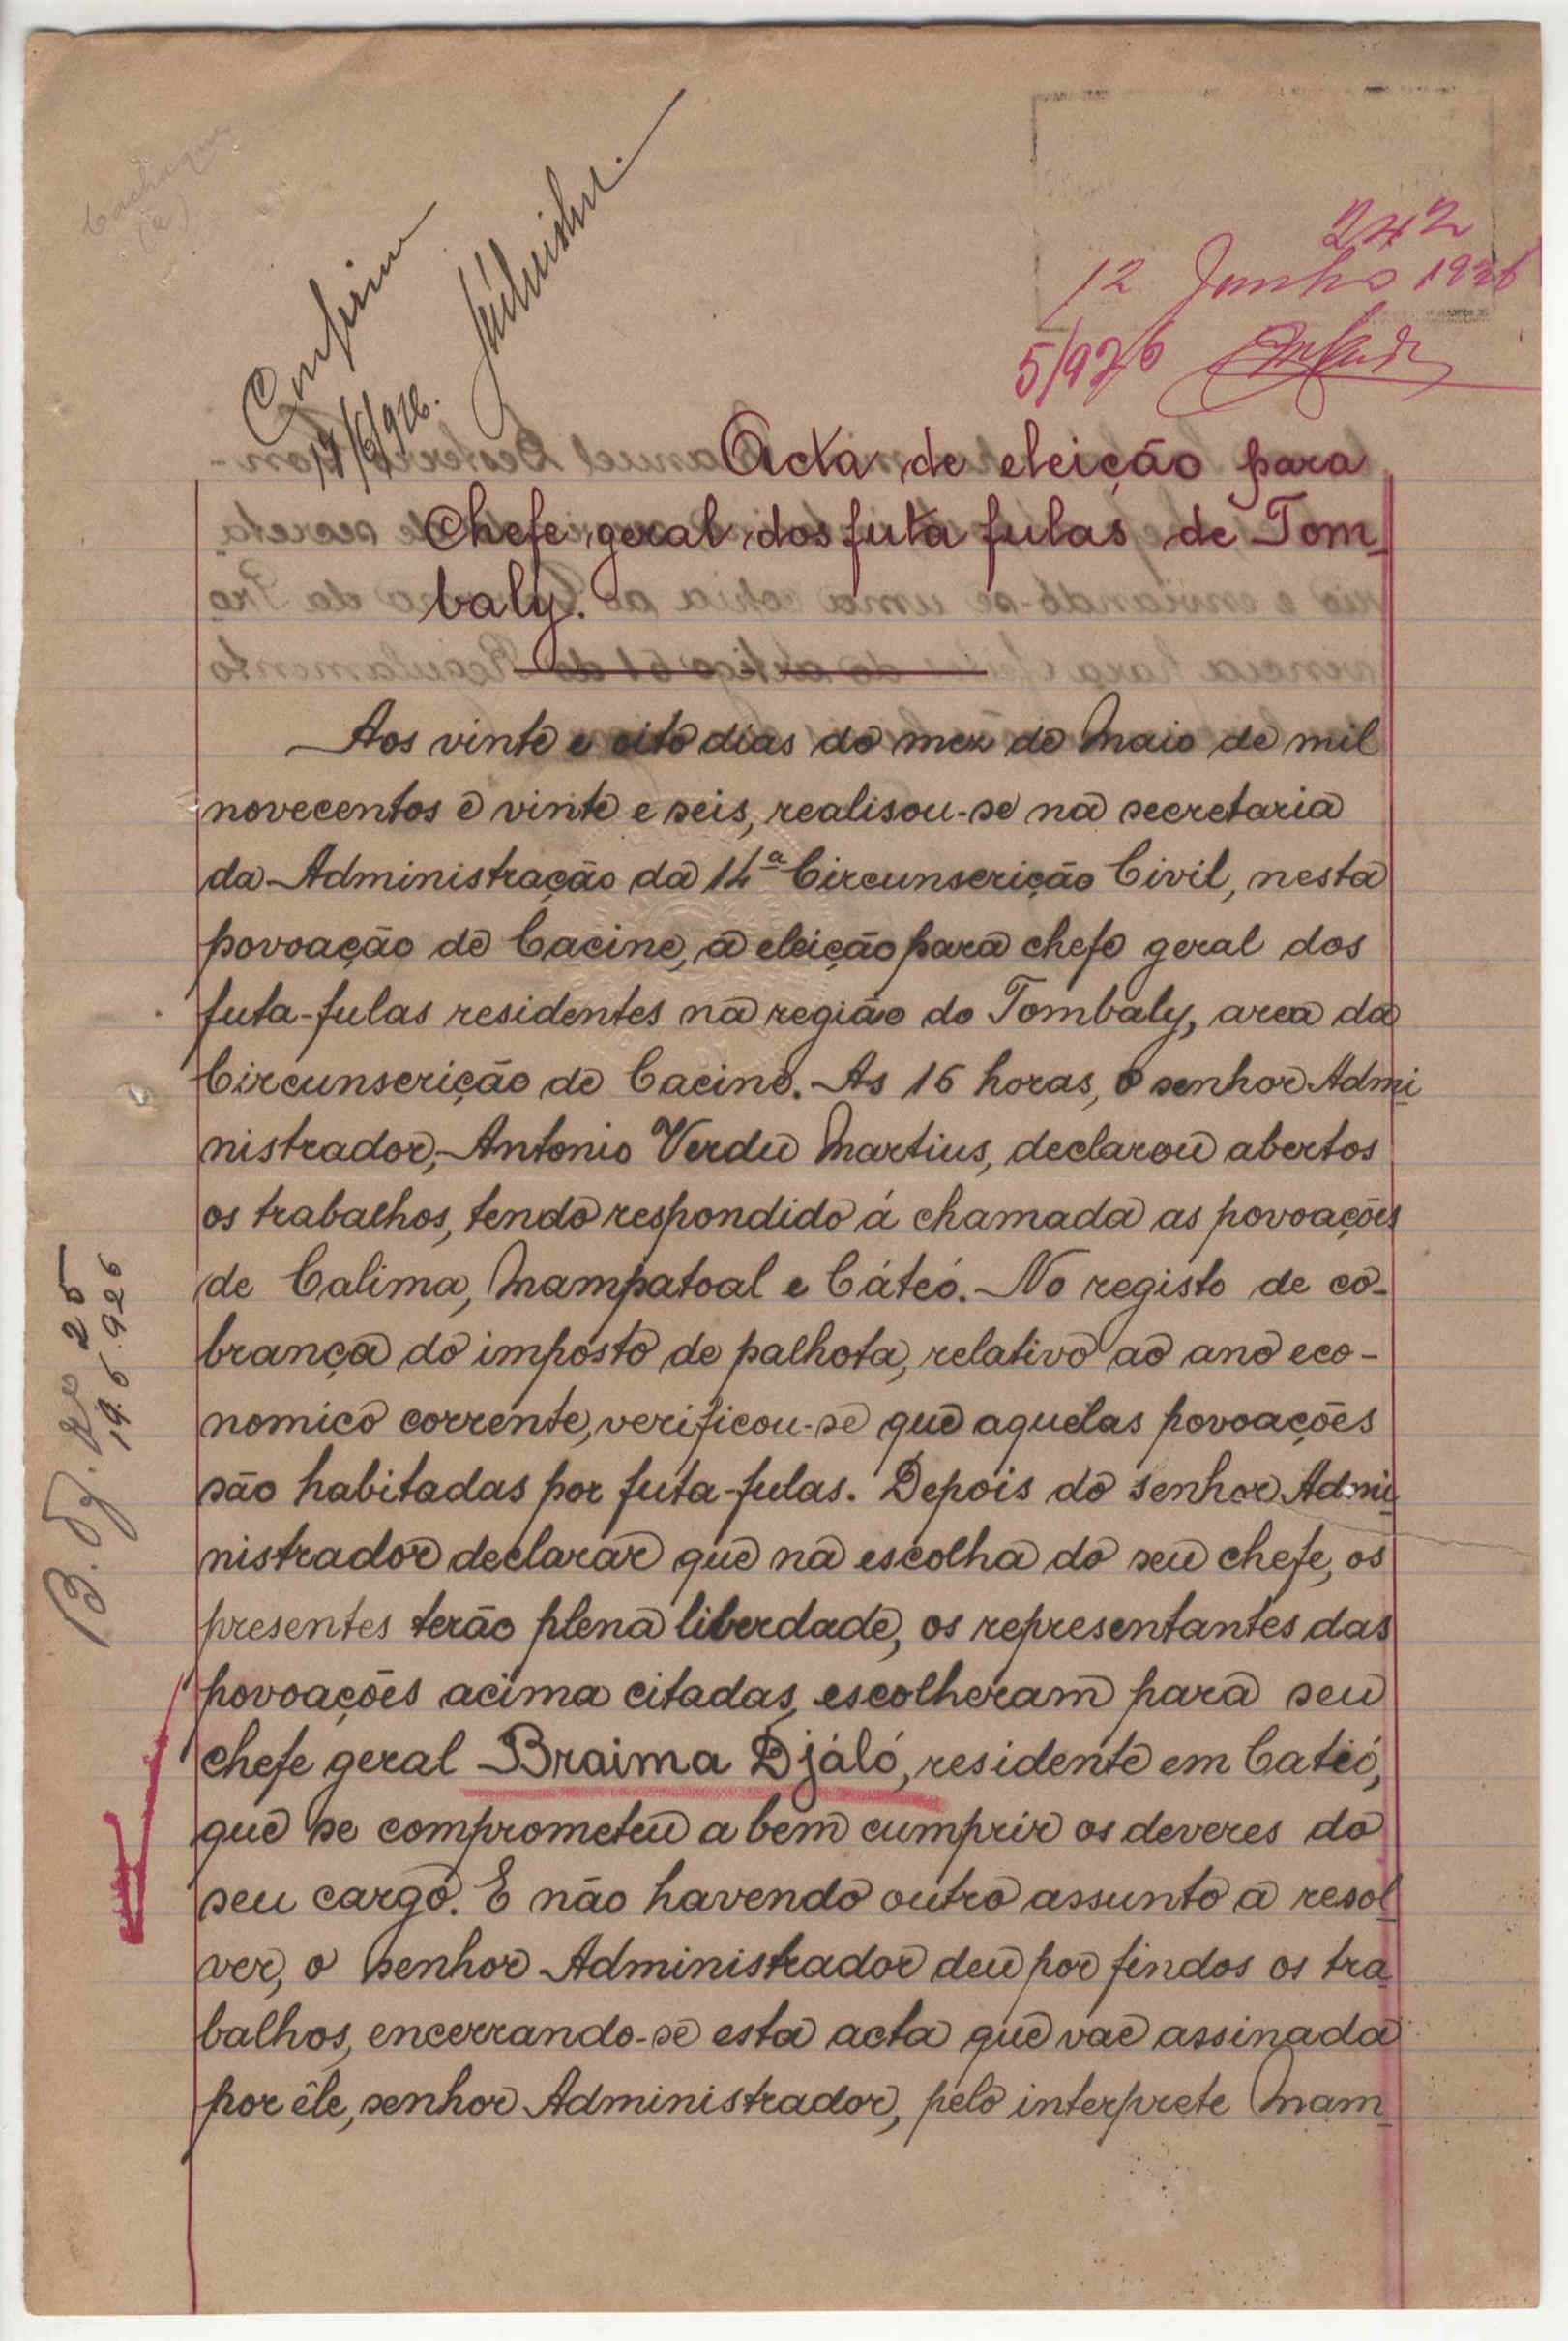 242
12 Junho 1926
5/926
17/6/926.
Acta de eleição para
Chefe geral dos futa fulas de Tom-
baly.
Aos vinte e oito dias do mez de Maio de mil
novecentos e vinte e seis, realisou-se na secretaria
da Administração da 14ª Circunscrição Civil, nesta
povoação de Cacine, a eleição para chefe geral dos
futa-fulas residentes na região do Tombaly, area da
Circunscrição de Cacine. As 16 horas, o senhor Admi-
nistrador, Antonio Verdu Martius, declarou abertos
os trabalhos, tendo respondido á chamada as povoações
de Calima, Mampatoal e Cáteó. No registo de co-
brança do imposto de palhota, relativo ao ano eco-
nomico corrente, verificou-se que aquelas povoações
são habitadas por futa-fulas. Depois do senhor Admi-
nistrador declarar que na escolha do seu chefe, os
presentes terão plena liberdade, os representantes das
povoações acima citadas, escolheram para seu
chefe geral Braima Djáló, residente em Catió,
que se comprometeu a bem cumprir os deveres do
seu cargo. E não havendo outro assunto a resol-
ver, o senhor Administrador deu por findos os tra-
balhos, encerrando-se esta acta que vae assinada
por êle, senhor Administrador, pelo interprete Mam-
B. Of. nº 25
19.6.926